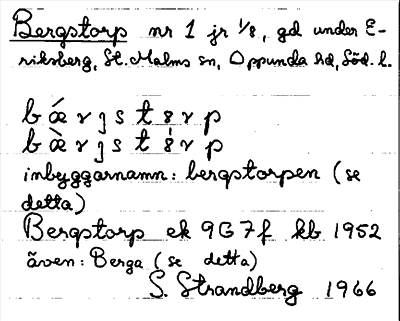 Bergstorp nr 1 jr 1/8, gd under E-
riksberg, St. Malms sn, Oppunda hd, Söd. l.
inbyggarnamn: bergstorpen (se
detta)
Bergstorp ek 9G7f kb 1952
även: Berga (se detta)
S. Strandberg 1966